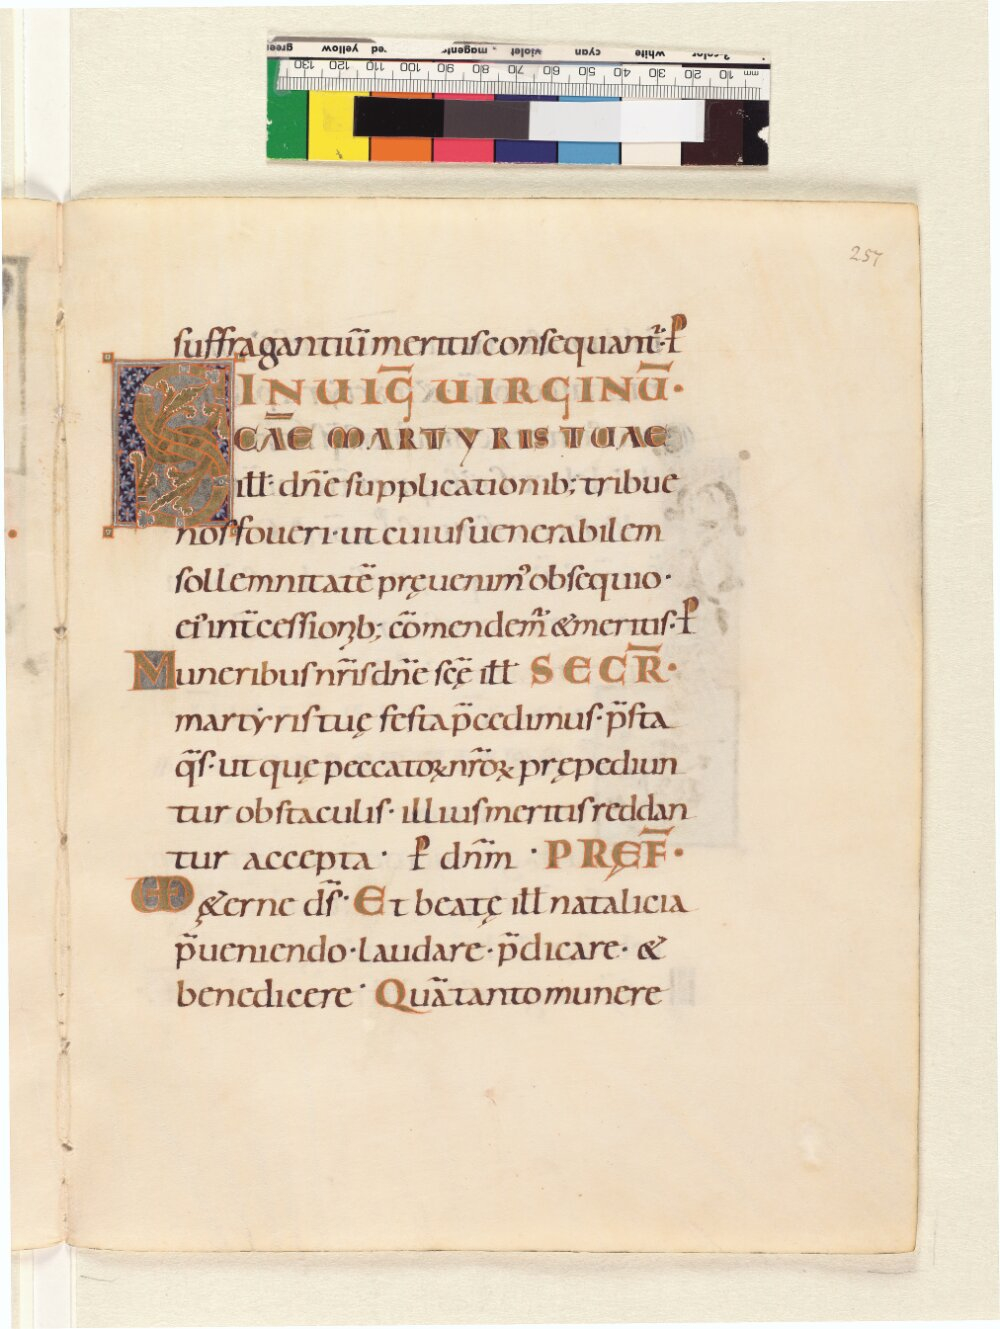 257
suffragantiū meritis consequant᷑· P̄
IN UIḠ UIRGINŪ·
S̄CAE MARTYRIS TUAE
ill̄· dn̄e supplicationib; tribue
nos foueri· ut cuius uenerabilem
sollemnitatē pręuenimꝰ obsequio·
eiꝰ int̄cessionib; cōmendem᷑ & meritis· P̄
Muneribus nr̄is dn̄e scę̄ ill̄ SECR̄·
martyris tuę festa p̄cedimus· p̄sta
q̄s· ut quę peccatoꝝ nr̄oꝝ prępediun
tur obstaculis· illius meritis reddan
tur accepta· P̄ dn̄m· PRĘF̄·
Æ &erne ds̄· Et beatę ill̄ natalicia
p̄ueniendo· laudare· p̄dicare· &
benedicere· Quā tanto munere
mm 10 20 30 40 50 60 70 80 90 100 110 120 130
3-color white cyan violet magenta red yellow green